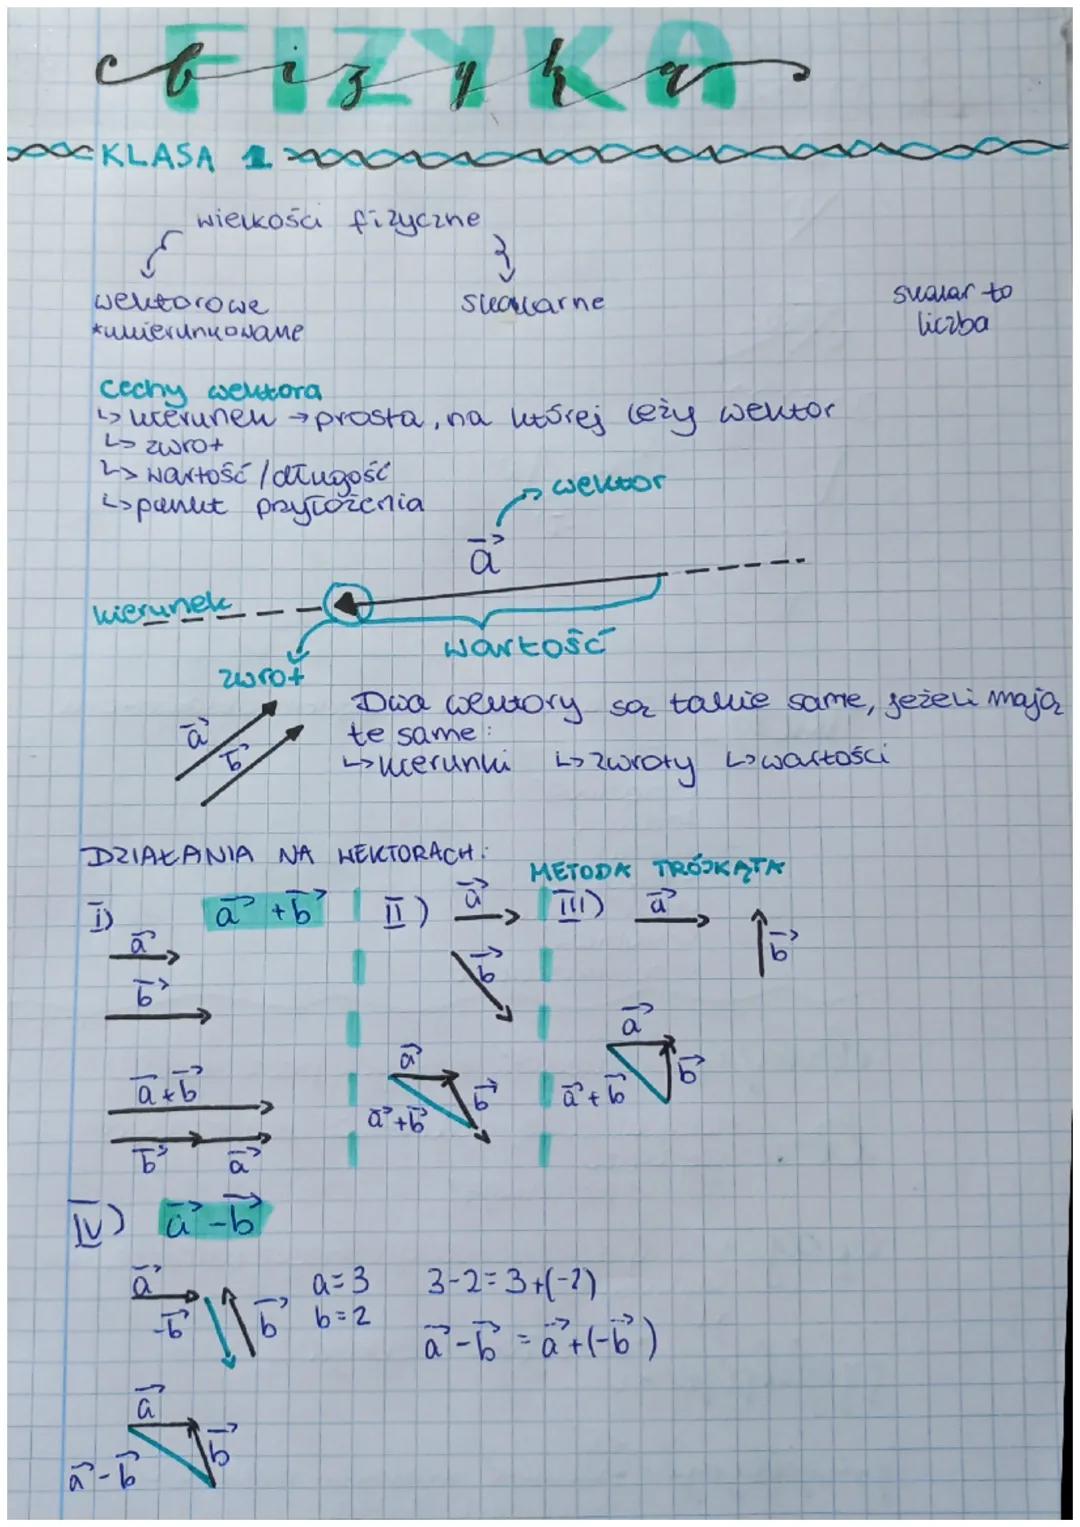 FIZYKA
fizyka
KLASA 1
wielkości fizyczne
wektorowe
skalarne
skalar to
*ukierunkowane
liczba
cechy wektora
↳ kierunek → prosta, na której leży wektor
↳ zwrot
↳ wartość / długość
↳ punkt przyłożenia
wektor
a⃗
kierunek
wartość
zwrot
a⃗
b⃗
Dwa wektory są takie same, jeżeli mają
te same:
↳ kierunki ↳ zwroty ↳ wartości
DZIAŁANIA NA WEKTORACH:
METODA TRÓJKĄTA
I) a⃗ + b⃗
a⃗
b⃗
a⃗ + b⃗
b⃗ a⃗
II) a⃗
b⃗
a⃗
b⃗
a⃗ + b⃗
III) a⃗
b⃗
a⃗
b⃗
a⃗ + b⃗
IV) a⃗ - b⃗
a⃗
-b⃗
b⃗
a=3 3-2=3+(-2)
b=2
a⃗ - b⃗ = a⃗ + (-b⃗)
a⃗
b⃗
a⃗ - b⃗